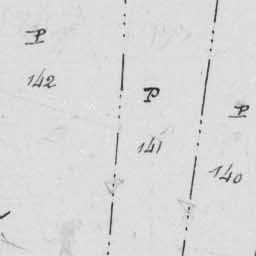 P
142
P
141
P
140